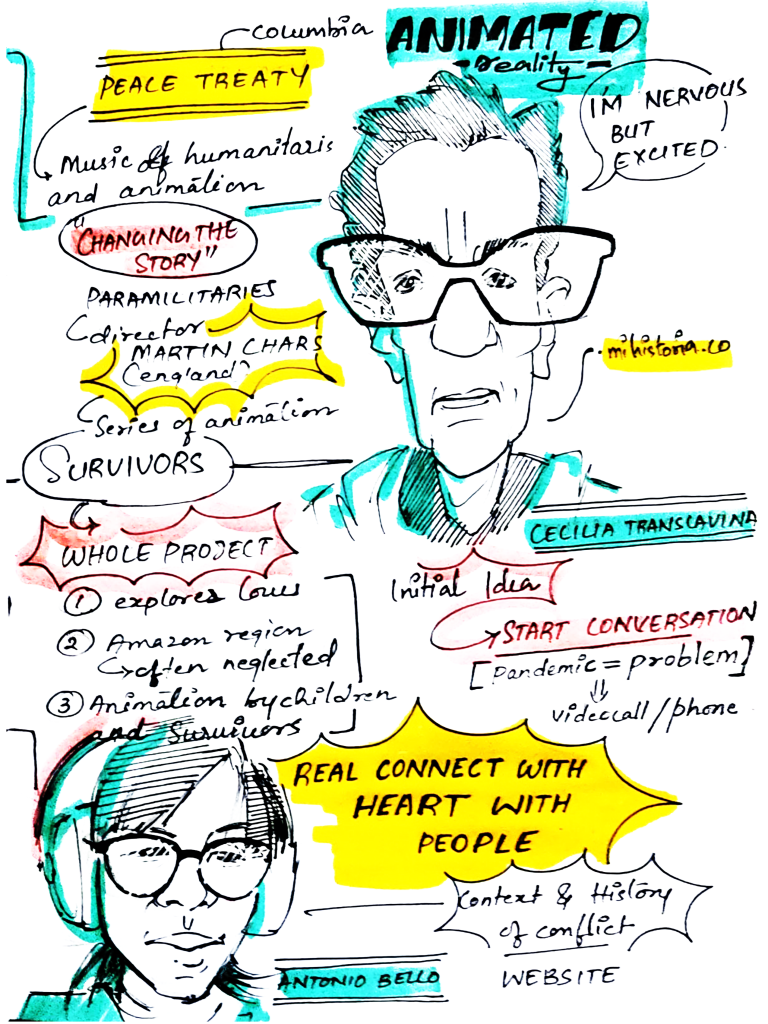 Columbia
ANIMATED
reality
PEACE TREATY
I'M NERVOUS
BUT
EXCITED.
Music of humanitaris
and animation
"CHANGING THE
STORY"
PARAMILITARIES
director
MARTIN CHARS
(england)
Series of animation
mihistoria.co
SURVIVORS
CECILIA TRANSLAVINA
WHOLE PROJECT
① explores
② Amazon region
often neglected
③ Animation by children
and Survivors
Initial Idea
START CONVERSATION
[Pandemic = problem]
videocall/phone
REAL CONNECT WITH
HEART WITH
PEOPLE
Context & History
of conflict
WEBSITE
ANTONIO BELLO